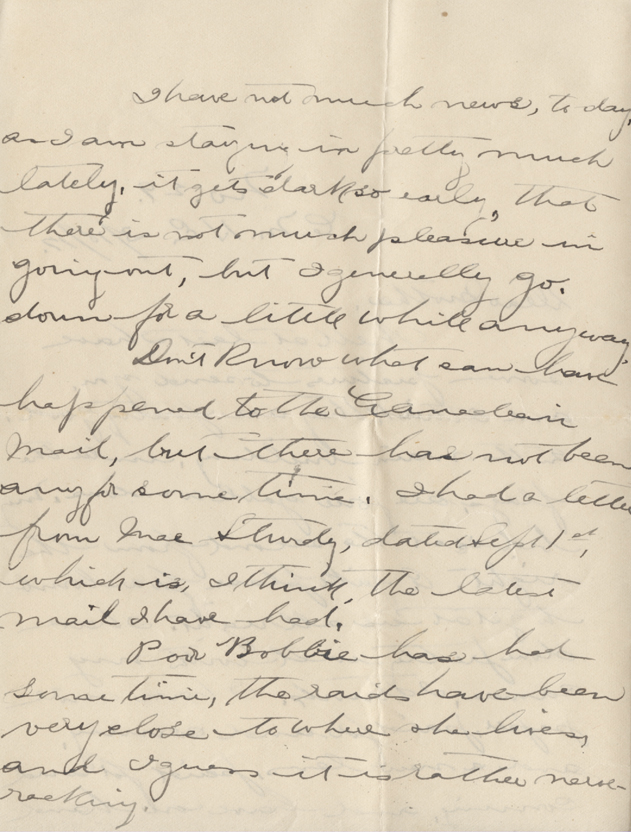 I have not much news, to day,
as I am staying in pretty much
lately, it gets dark so early, that
there is not much pleasure in
going out, but I generally go.
down for a little while anyway
Don't Know what can have
happened to the Canadian
Mail, but there has not been
any for some time. I had a letter
from Mae Sturdy, dated Sept 1st,
which is, I think, the latest
mail I have had.
Poor Bobbie has had
some time, the raids have been
very close to where she lives,
and I guess it is rather nerve-
racking.